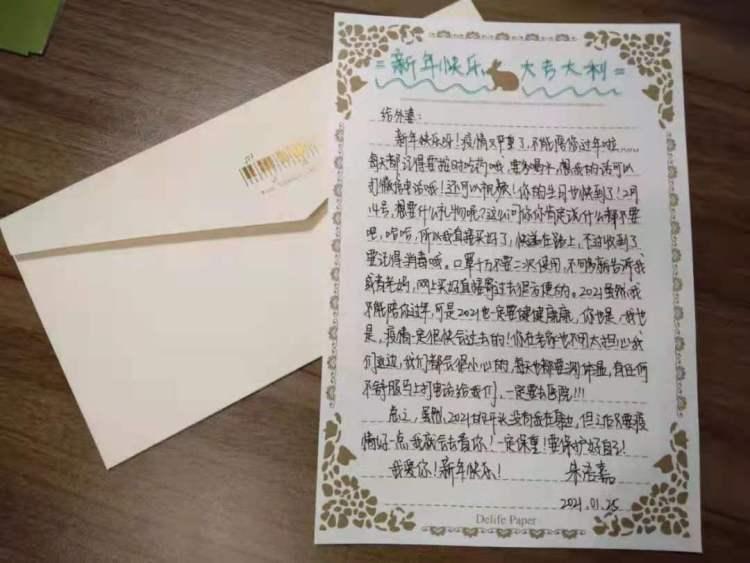 =新年快乐 大吉大利=
给外婆:
新年快乐呀!疫情又严重了,不能陪你过年啦……
每天都记得要按时吃药哦,要多喝水,想我的话可以
打微信电话哦!还可以视频!你的生日也快到了!2月
14号,想要什么礼物呢?这么问你你肯定说什么都不要
吧,哈哈,所以我直接买好了,快递在路上,不过收到了
要记得消毒哦。口罩千万不要二次使用,不够了就告诉我
或者老妈,网上买好直接寄过去很方便的。2021虽然我
不能陪你过年,可是2021也一定要健健康康,你也是,我也
是,疫情一定很快会过去的!你在老家也不用太担心我
们这边,我们都会很小心的,每天也都要测体温,有任何
不舒服马上打电话给我们,一定要去医院!!!
总之,虽然,2021的开头没有我在身边,但
情好一点我就会去看你!一定保重!要保护好自己!
我爱你!新年快乐! 朱 嘉
2021.01.25
Delife Paper